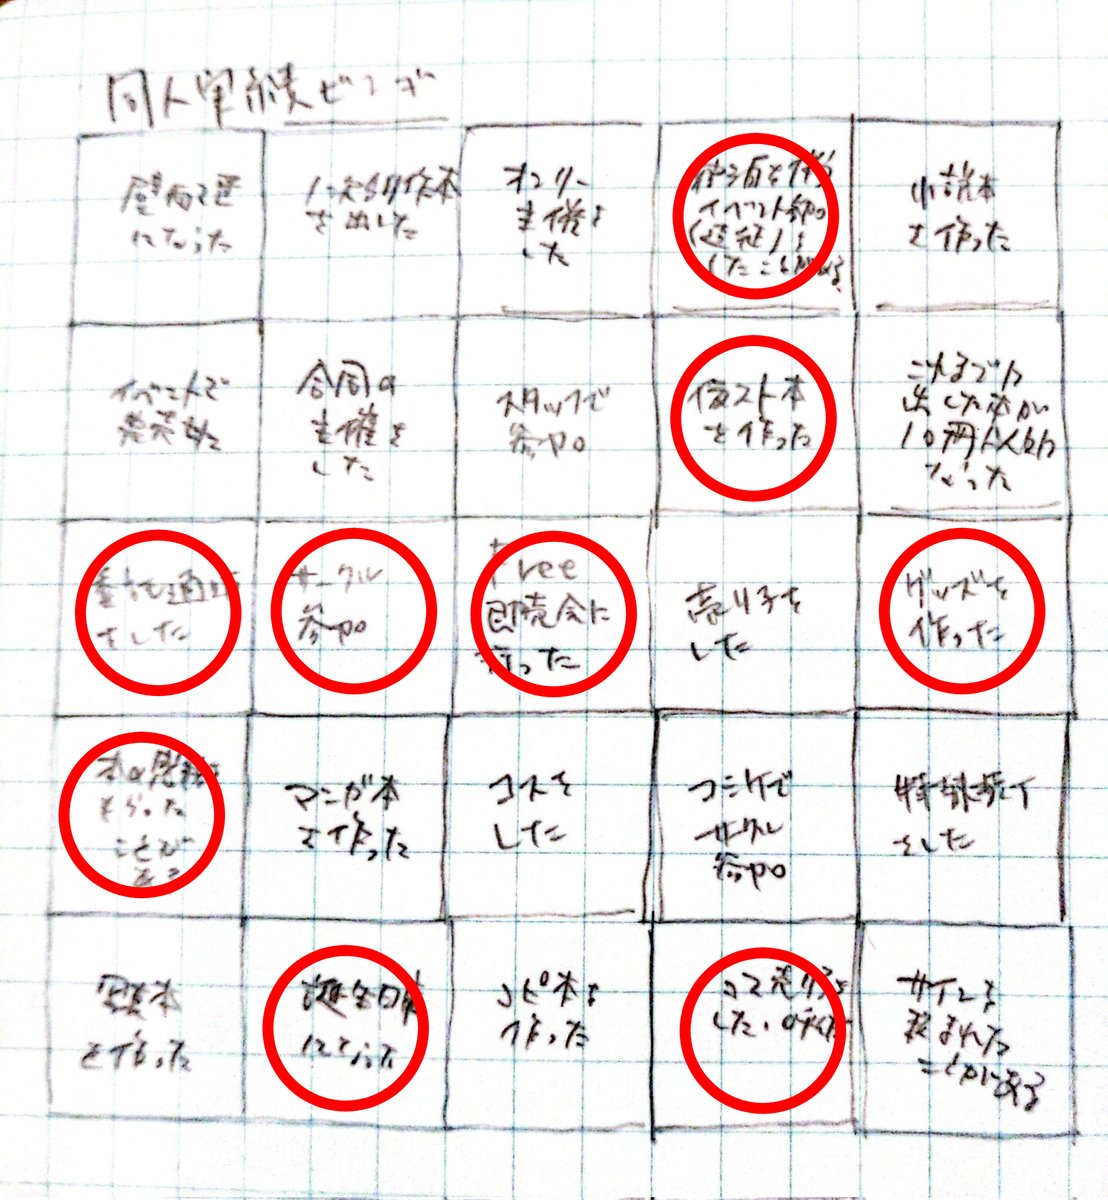 同人実績ビンゴ
壁配置
になった
を出した
オンリー
主催を
した
イベント参加
(遠征)を
したことがある
小説本
を作った
イベントで
合同の
主催を
した
スタッフで
参加
イラスト本
を作った
これまでに
出した本が
10冊以上に
なった
委託通販
をした
サークル
参加
Free
即売会に
行った
売り子を
した
グッズを
作った
本の感想を
もらった
ことが
ある
マンガ本
を作った
コスを
した
コミケで
サークル
参加
特殊装丁
をした
写真本
を作った
誕生日席
になった
コピ本を
作った
コス売り子を
した
サインを
頼まれた
ことがある